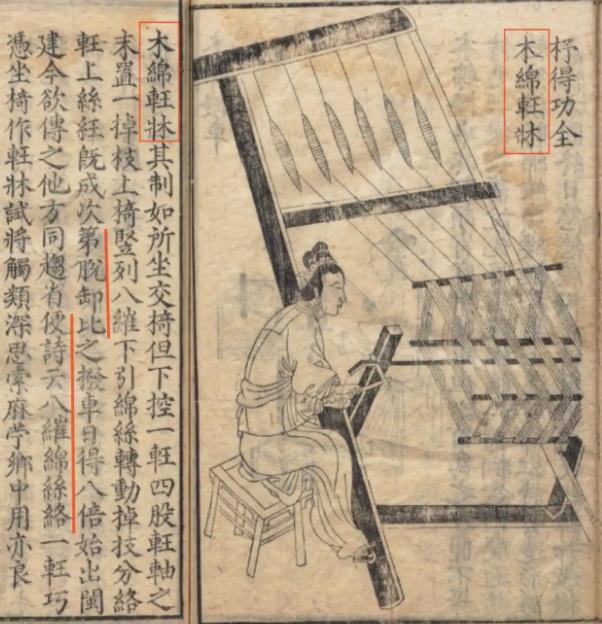 杼得功全
木綿軖牀
木綿軖牀其制如所坐交椅但下控一軖四股軖軸之
末置一掉枝上椅竪列八繀下引綿絲轉動掉技分絡
軖上絲紝既成次第脫卸比之撥車日得八倍始出閩
建今欲傳之他方同趨省便詩云八繀綿絲絡一軖巧
憑坐椅作軖牀試將觸類深思索麻苧鄉中用亦良